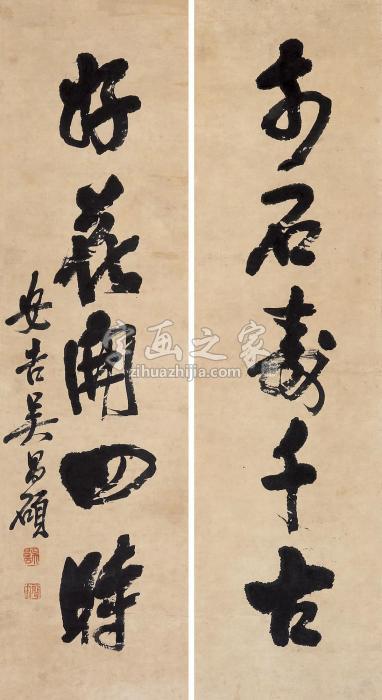 奇石壽千古
好花開四時
安吉吳昌碩
字画之家
zihuazhijia.com